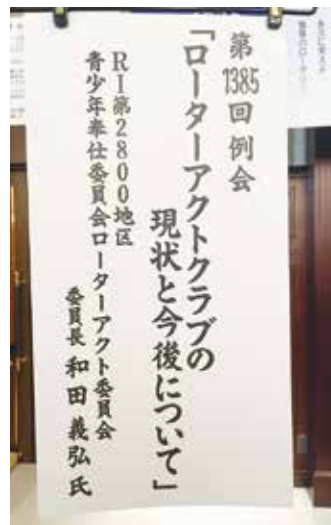 第1385回例会
「ローターアクトクラブの
現状と今後について」
RI第2800地区
青少年奉仕委員会ローターアクト委員会
委員長 和田義弘氏